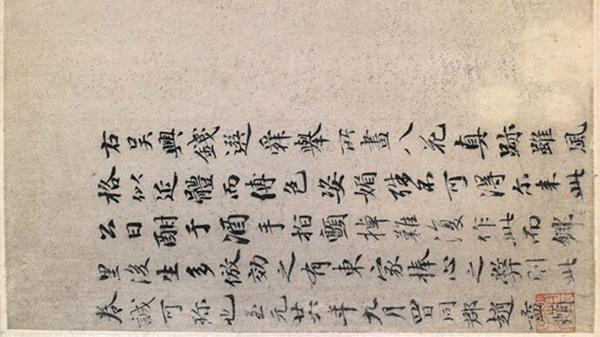 右吳興錢選舜舉所畫八花真跡雖風
格似近體而傅色姿媚殊不可得尔来此
公日酣于酒手指顫掉難復作此而鄉
里後生多倣效之有東家捧心之弊則此
卷誠可珍也至元廿六年九月四日同郡趙孟頫